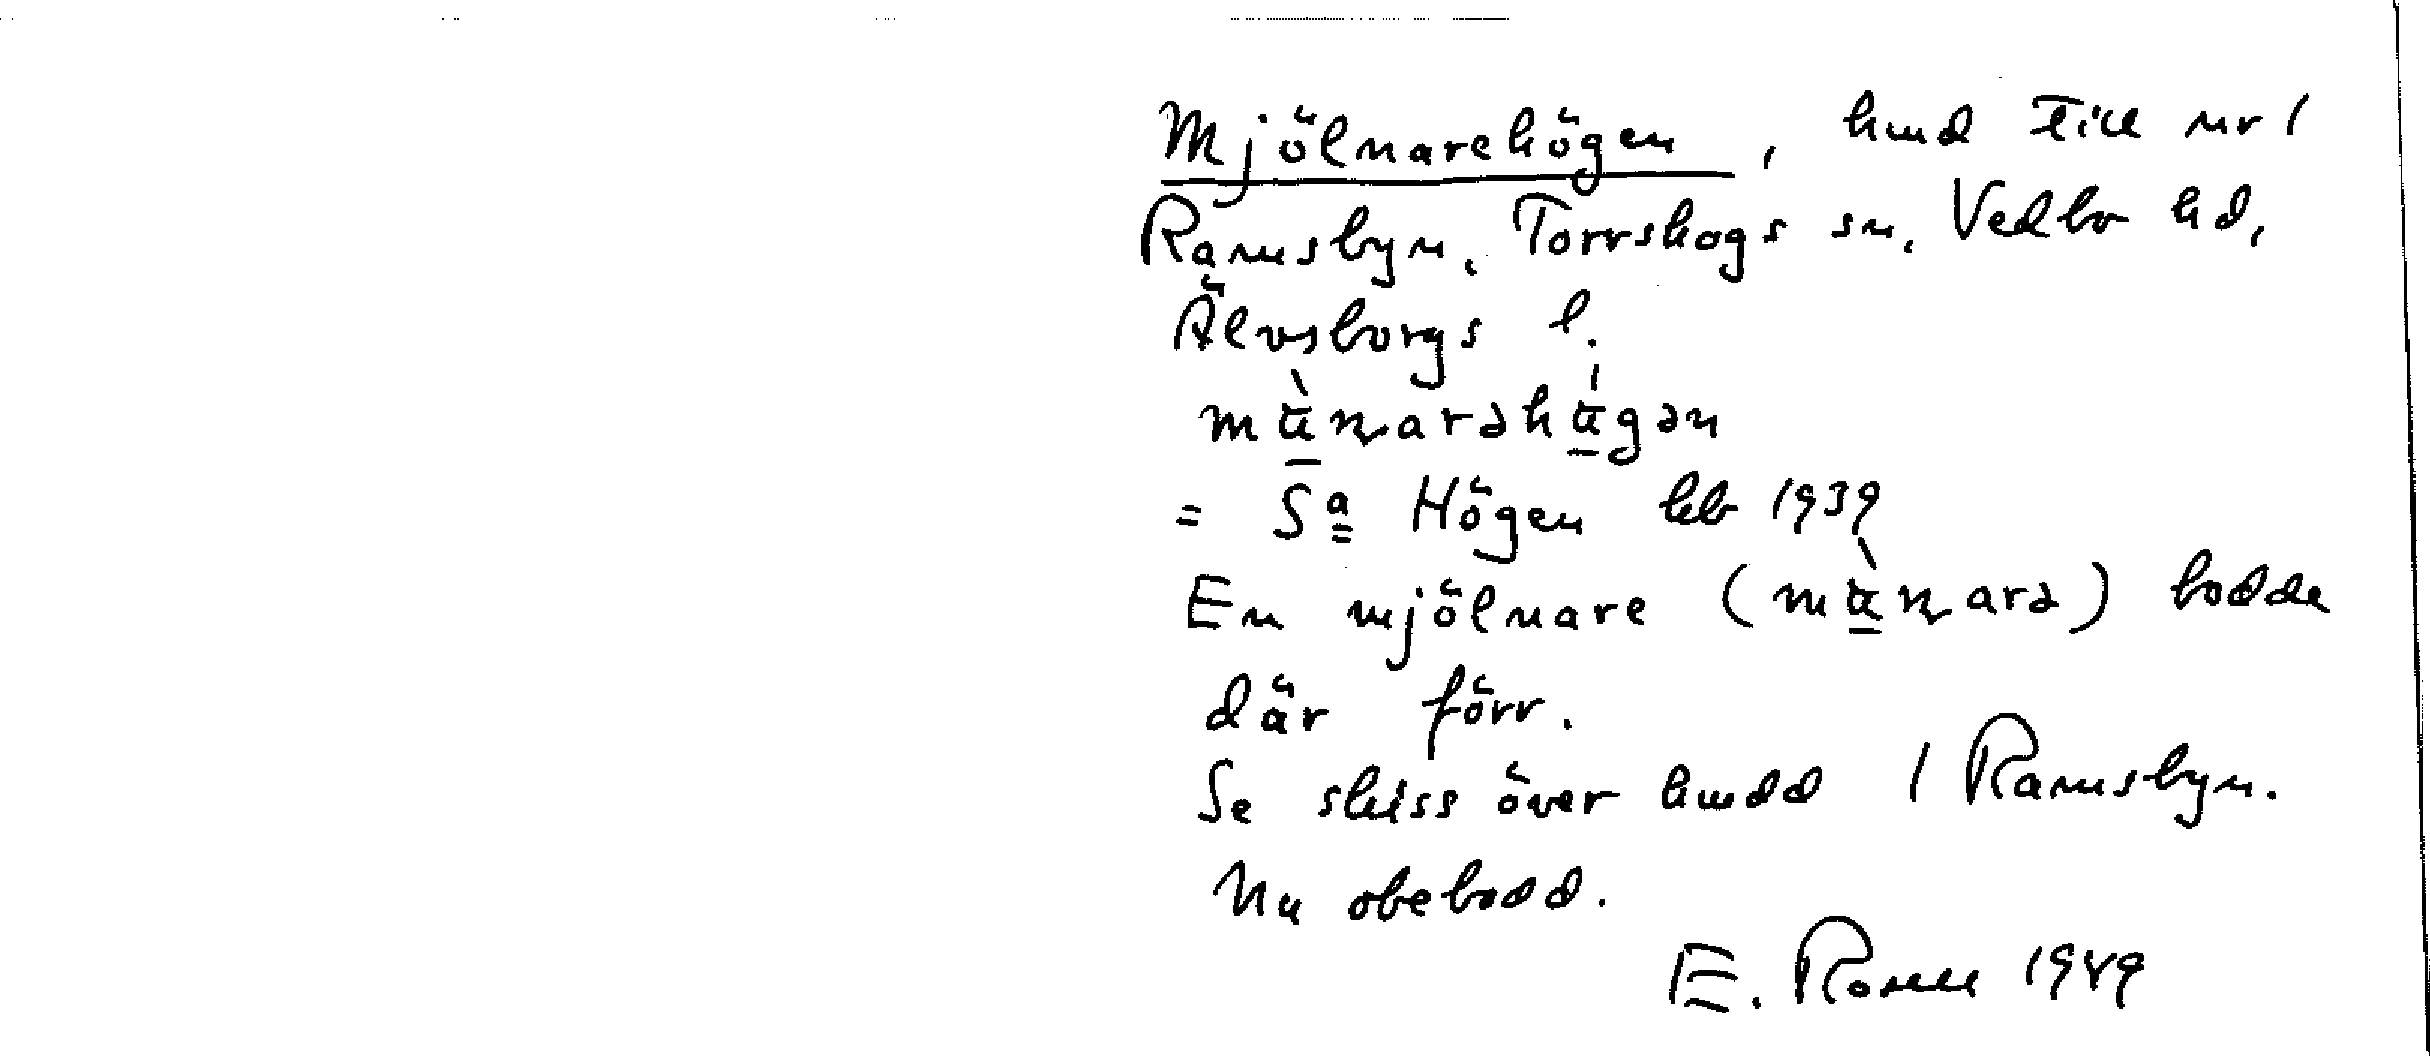 Mjölnarehögen, hmd till nr 1
Ramsbyn, Torrskogs sn, Vedbo hd,
Älvsborgs l.
= Sa Högen kb 1939
En mjölnare bodde
där förr.
Se skiss över hmdd 1 Ramsbyn.
Nu obebodd.
E. Rosell 1949